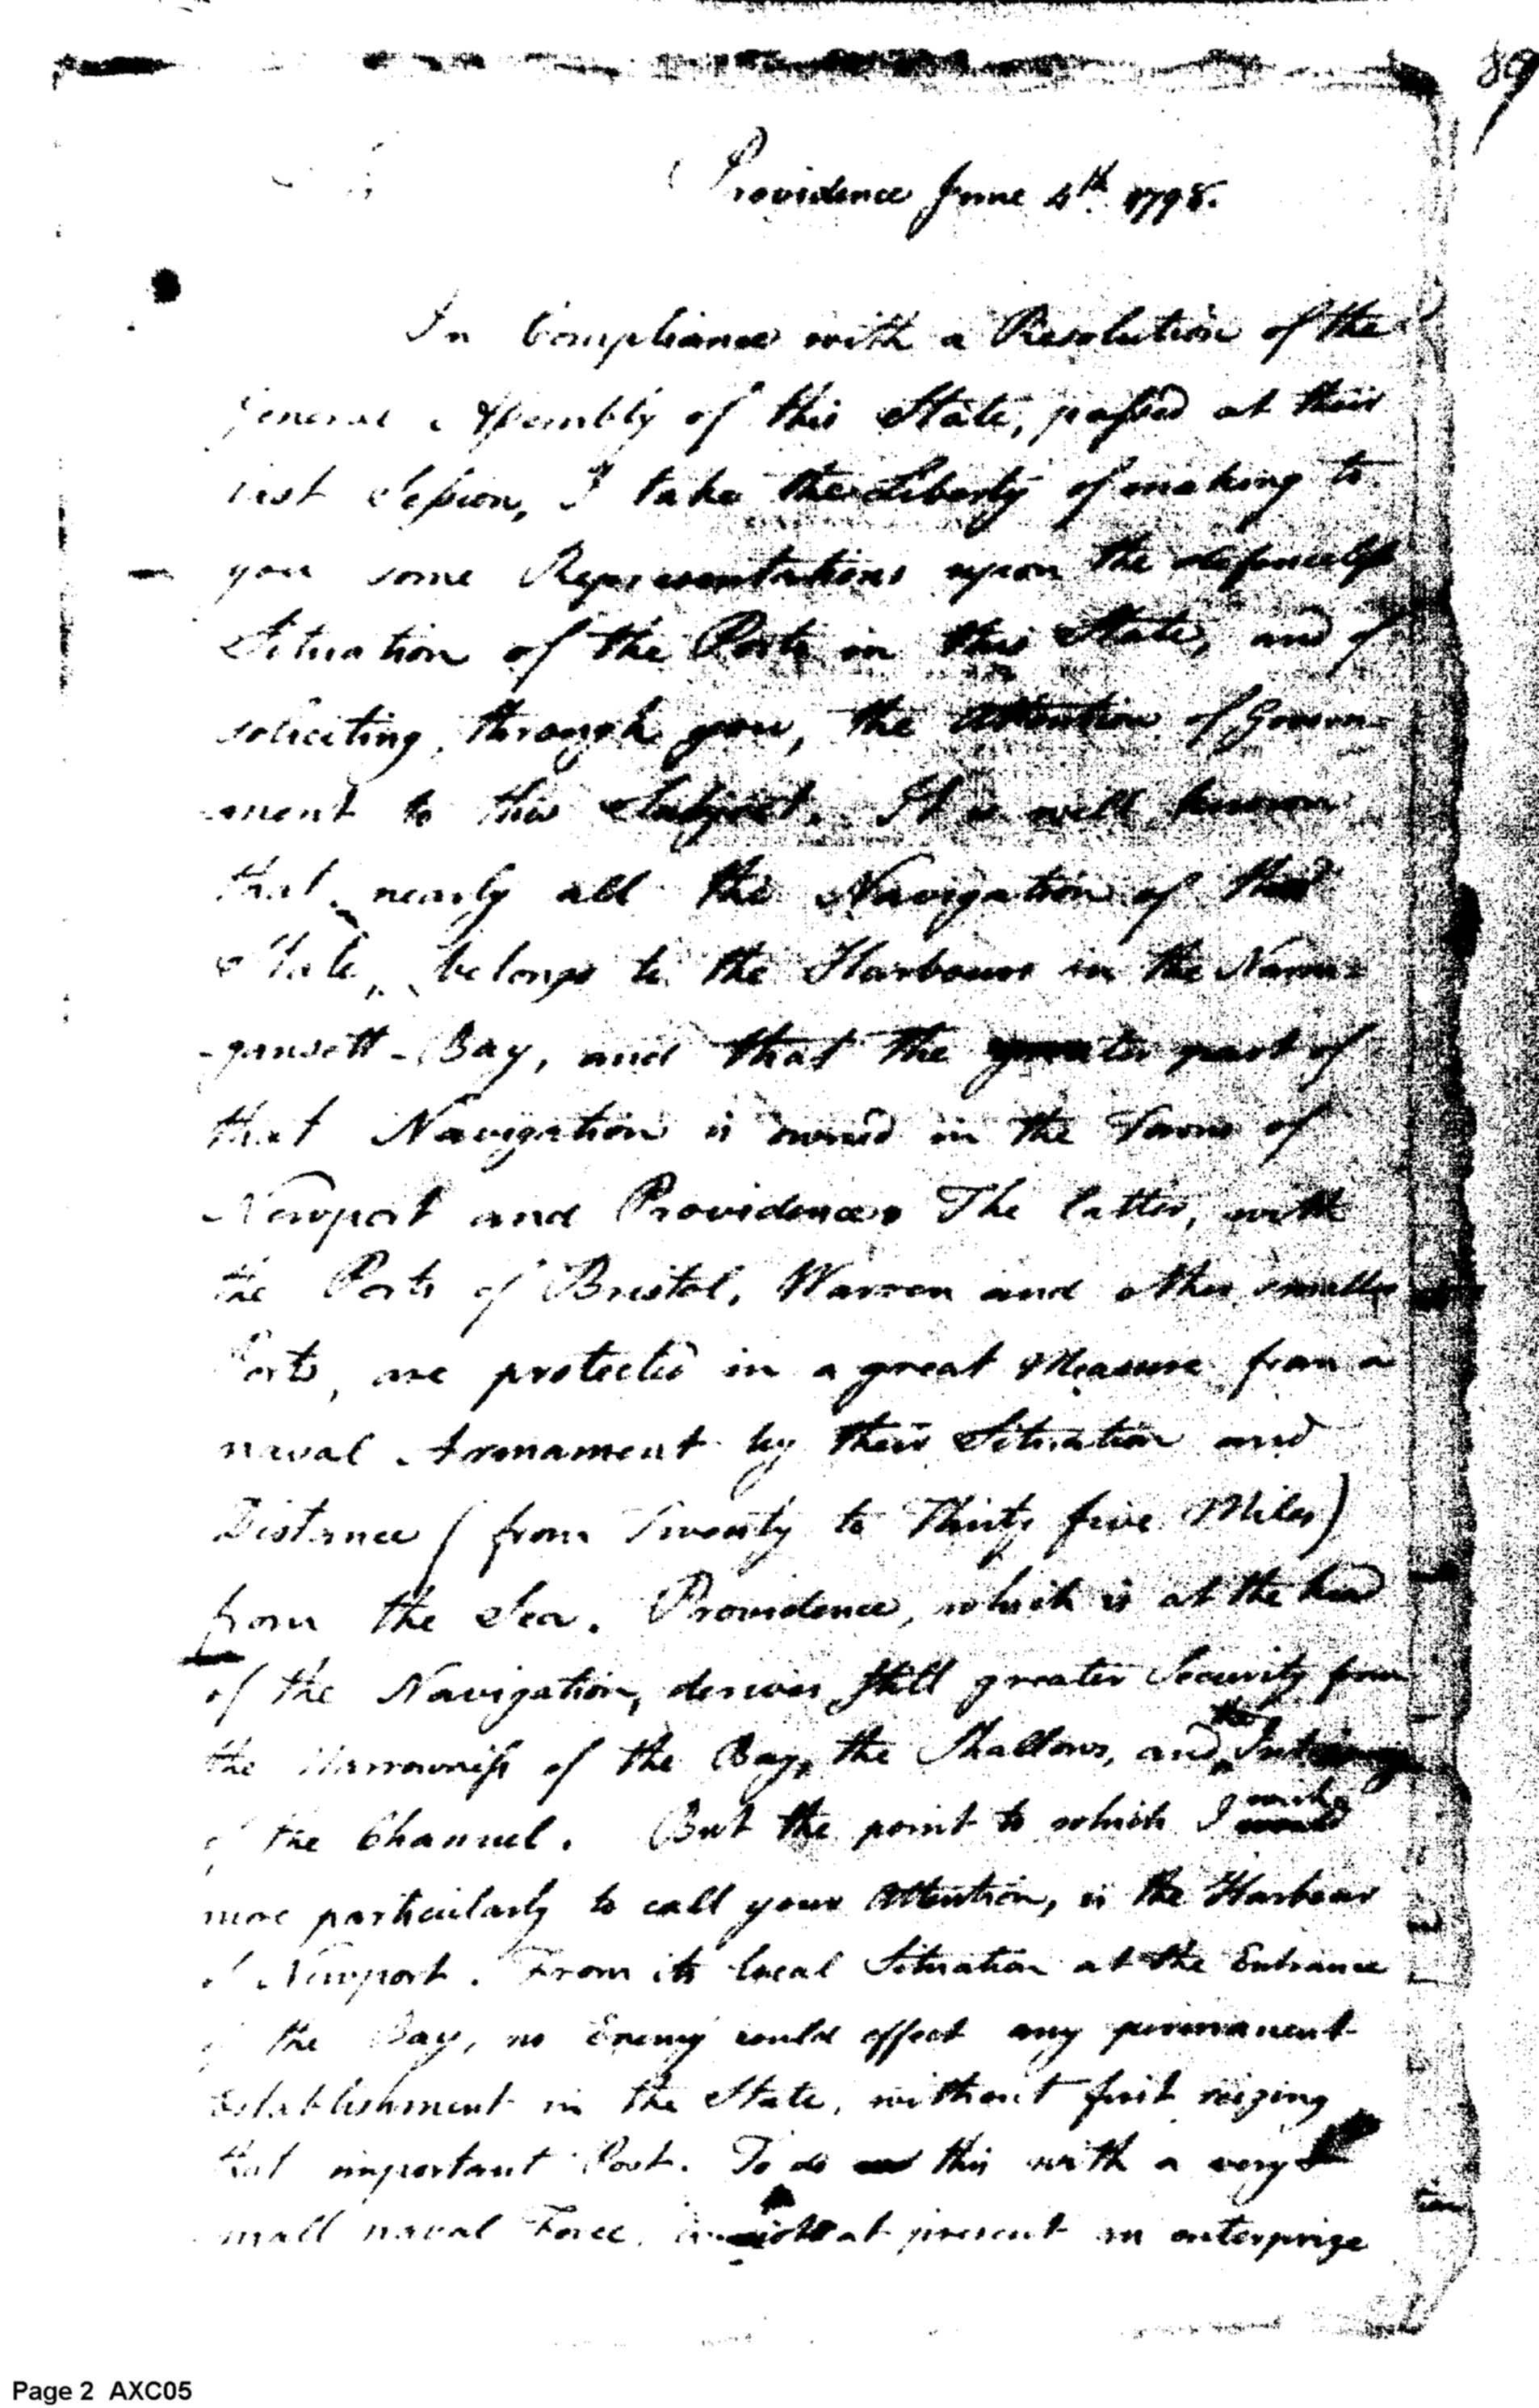 89
Providence June 4th. 1798.
In Compliance with a Resolution of the
General Assembly of this State, passed at their
last Session, I take the Liberty of making to
you some Representations upon the defenceless
Situation of the Ports in this State, and of
soliciting, through you, the Attention of Govern-
-ment to this Subject. It is well known
that nearly all the Navigation of this
State, belongs to the Harbours in the Narra-
-gansett-Bay, and that the greater part of
that Navigation is owned in the Towns of
Newport and Providence. The latter, with
the Ports of Bristol, Warren and other smaller
Ports, are protected in a great Measure from a
naval Armament by their Situation and
Distance (from Twenty to Thirty five Miles)
from the Sea. Providence, which is at the head
of the Navigation, derives still greater Security from
the Narrowness of the Bay, the Shallows, and the
of the Channel. But the point to which I wish
more particularly to call your Attention, is the Harbour
of Newport. From its local Situation at the Entrance
of the Bay, no Enemy could effect any permanent
Establishment in the State, without first seizing
that important Post. To do this with a very
small naval Force, at present an enterprize
Page 2 AXC05